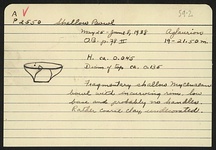 A
P 2550 Shallow Bowl
May 25 - June 8, 1938 Agdaurion
ΩΩ p. 98 II 19-21.50 m
H. ca. 0.045
Diam of top ca. 0.135
Fragmentary shallow Mycenaean
bowl with incurving rim, low
base and probably no handles.
Rather coarse clay undecorated.